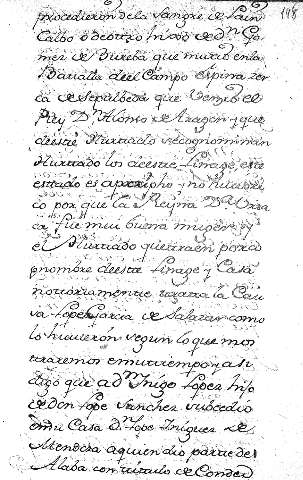 procedieron de la Sangre de Lain
Calbo o de otro hijo de Dⁿ Go
mez de Bureba que murio en la
Batalla del Campo espina zer
ca de Sepulbeda que Vencio el
Rey Dⁿ Alonso de Aragon y que
de este Hurtado se cognominan
Hurtado los de este linage, este
estado es apocripho y no
co por que la Reyna Dª Urra
ca fue mui buena muger y
el Hurtado que traen por co
gnombre de este linage y Casa
notoriamente la Cau
sa Lope Garcia de Salazar como
lo hizieron segun lo que mos
traremos en su tiempo y asi
digo que a Dⁿ Iñigo Lopez hijo
de don Lope Sanchez subcedio
en su Casa Dⁿ Lope Iñiguez de
Mendoza a quien dio parte de
Alaba con titulo de Conde
148